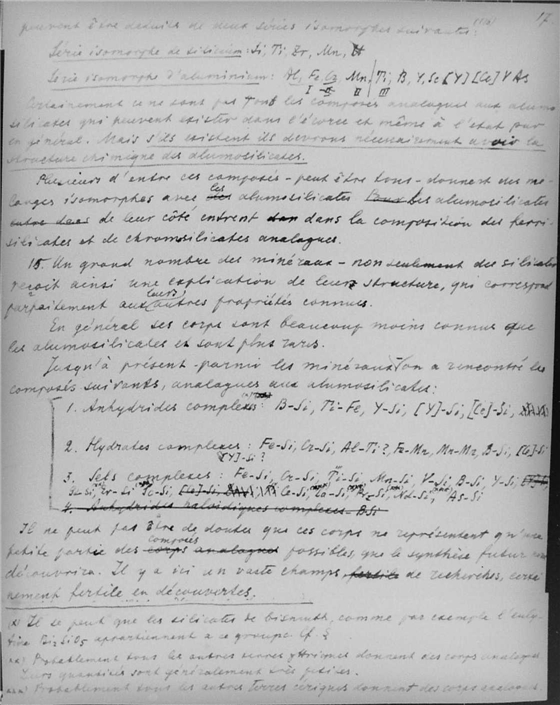 17
peuvent être déduits de deux séries isomorphes suivantes:
Série isomorphe de silicium: Si, Ti Zr, Mn,
Série isomorphe d'aluminium: Al, Fe, Cr, Mn, Ti, B, Y, Sc [Y] [Ce] V As
I II II III
Certainement ce ne sont pas tous les composés analogues aux alumo-
silicates qui peuvent exister dans l'écorce et même à l'état pur
en général. Mais s'ils existent ils devrons nécessairement avoir la
structure chimique des alumosilicates.
Plusieurs d'entre ces composés - peut être tous - donnent des mé-
langes isomorphes avec les alumosilicates les alumosilicates
de leur côté entrent dans la composition des ferri-
silicates et de chromsilicates analogues.
15. Un grand nombre des minéraux - non seulement des silicates
reçoit ainsi une explication de leur structure, qui correspond
parfaitement aux leurs autres propriétés connues.
En général ses corps sont beaucoup moins connus que
les alumosilicates et sont plus rares.
Jusqu'à présent parmi les minéraux on a rencontré les
composés suivants, analogues aux alumosilicates:
1. Anhydrides complexes: B-Si, Ti-Fe, Y-Si, [Y]-Si, [Ce]-Si,
2. Hydrates complexes: Fe-Si, Cr-Si, Al-Ti?, Fe-Mn, Mn-Mn, B-Si, [Ce]-Si
[Y]-Si?
3. Sels complexes: Fe-Si, Cr-Si, Ti-Si, Mn-Si, V-Si, B-Si, Y-Si,
Sc-Si, Ce-Si, La-Si, Pr-Si, Nd-Si, As-Si
4. Anhydrides haloidiques complexes B-Si
Il ne peut pas être de doutes que ces corps ne représentent qu'une
petite partie des composés possibles, que la synthèse future nous
découvrira. Il y a ici un vaste champs de recherches, certai-
nement fertile en découvertes.
(x) Il se peut que les silicates de bismuth, comme par exemple l'euly-
tine Bi₂SiO₅ appartiennent à ce groupe Cf. §
Probablement tous les autres terres yttriques donnent des corps analogues
Leurs quantités sont généralement très petites.
Probablement tous les autres terres cériques donnent des corps analogues